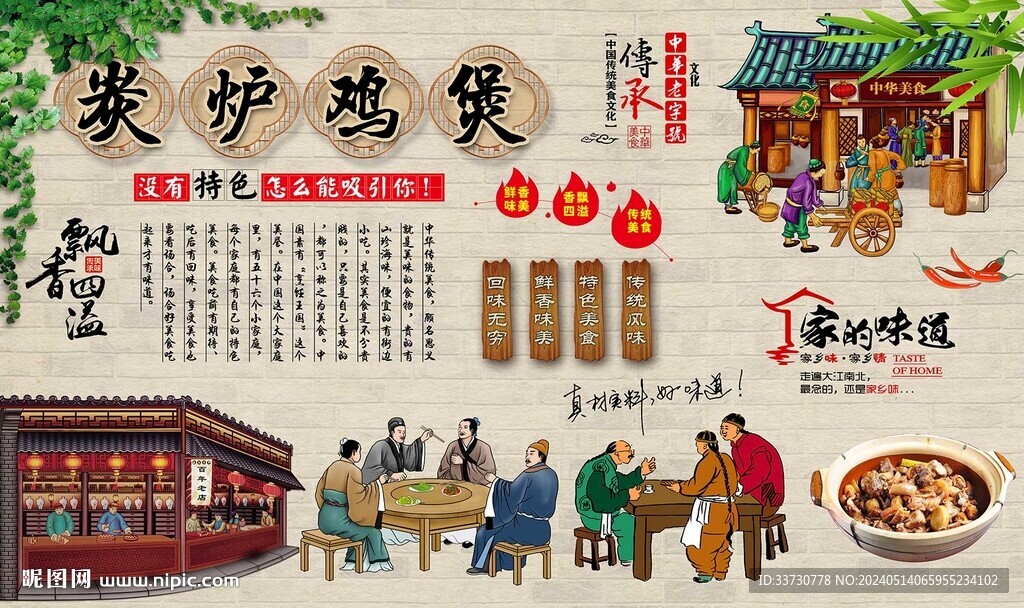 炭炉鸡煲
没有特色怎么能吸引你！
【中国传统美食文化】
传承
中華美食
中華老字號
文化
中华美食
鲜香味美
香飘四溢
传统美食
飘香四溢
中华传统美食，顾名思义
就是美味的食物，贵的有
山珍海味，便宜的有街边
小吃。其实美食是不分贵
贱的，只要是自己喜欢的
，都可以称之为美食。中
国素有“烹饪王国”这个
美誉。在中国这个大家庭
里，有五十六个小家庭，
每个家庭都有自己的特色
美食。美食吃前有期待、
吃后有回味，享受美食也
要看场合，场合好美食吃
起来才有味道。
回味无穷
鲜香味美
特色美食
传统风味
家的味道
家乡味·家乡情 TASTE
OF HOME
走遍大江南北，
最念的，还是家乡味...
真材实料，好味道！
百年老店
昵图网 www.nipic.com
ID:33730778 NO:20240514065955234102